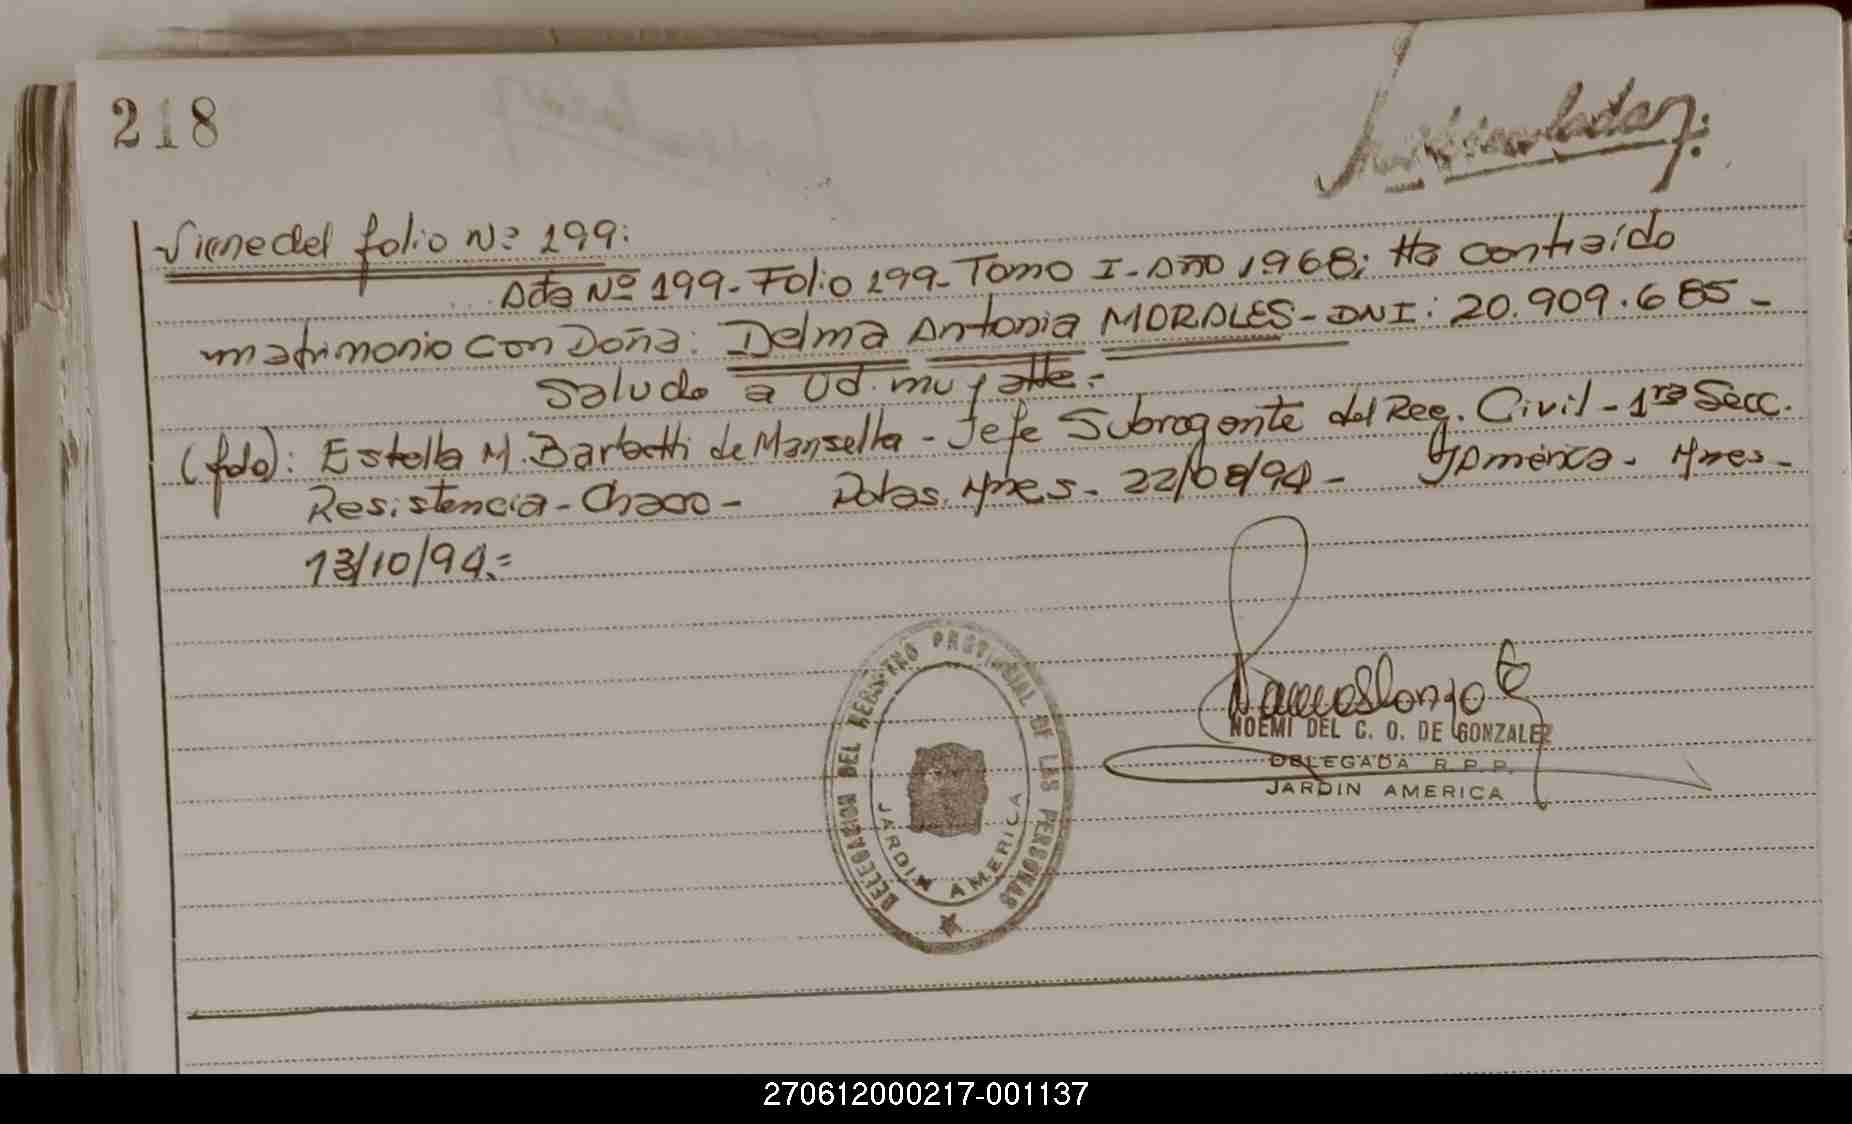 218
Viene del folio Nº 199:
Acta Nº 199-Folio 199-Tomo I-Año 1968; Ha contraído
matrimonio con Doña: Delma Antonia MORALES-DNI: 20.909.685-
Saludo a Ud. muy atte.-
(fdo): Estella M. Barbetti de Mansella-Jefe Subrogante del Reg. Civil-1ra Secc.
Resistencia-Chaco- Pdas. Mnes. 22/08/94- JAmérica. Mnes-
13/10/94.=
DELEGACION DEL REGISTRO PROVINCIAL DE LAS PERSONAS
JARDIN AMERICA
NOEMI DEL C. O. DE GONZALEZ
DELEGADA R.P.P.
JARDIN AMERICA
270612000217-001137